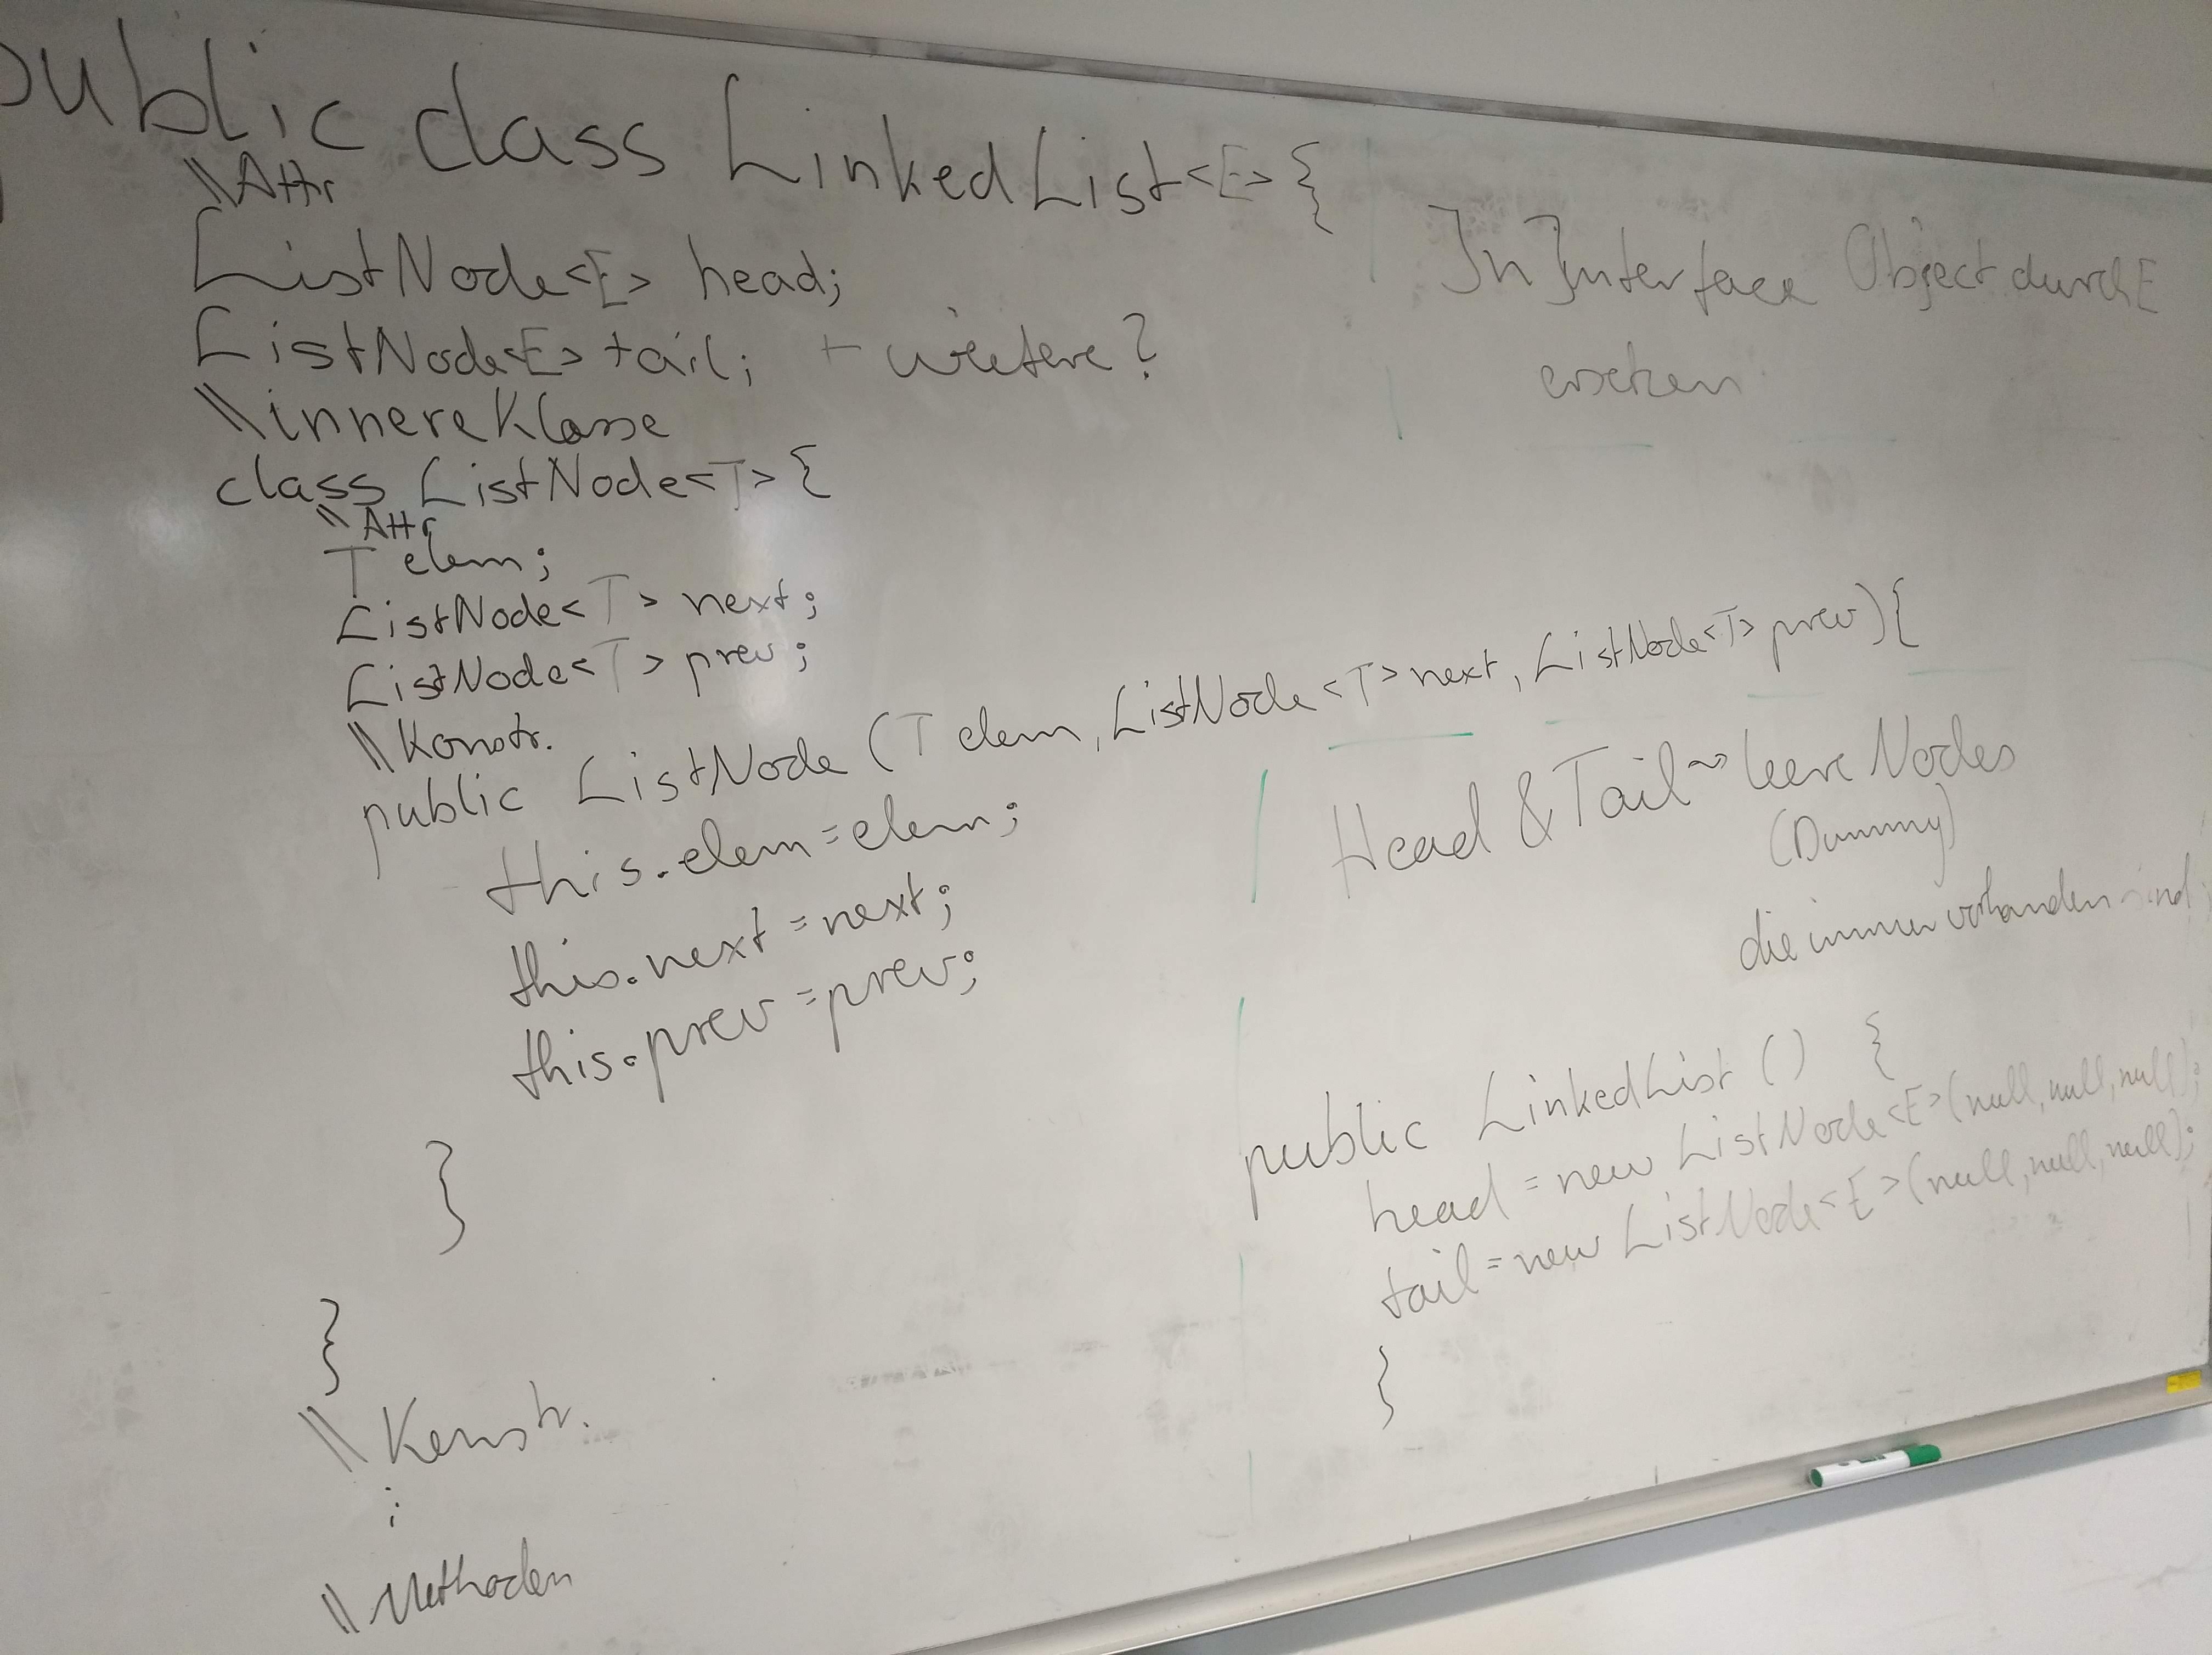 public class LinkedList<E> {
\\Attr
ListNode<E> head;
ListNode<E> tail; + weitere?
\\innere Klasse
class ListNode<T> {
\\Attr
T elem;
ListNode<T> next;
ListNode<T> prev;
\\Konstr.
public ListNode (T elem, ListNode<T> next, ListNode<T> prev){
this.elem = elem;
this.next = next;
this.prev = prev;
}
}
\\Konstr.
⋮
\\Methoden
In Interface Object durch E
ersetzen
Head & Tail ~> leere Nodes
(Dummy)
die immer vorhanden sind
public LinkedList () {
head = new ListNode<E>(null, null, null);
tail = new ListNode<E>(null, null, null);
}